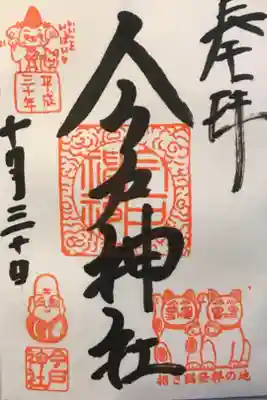 奉拝
今戸神社
平成
三十年
十月三十日
今戸
神社
招き猫発祥の地